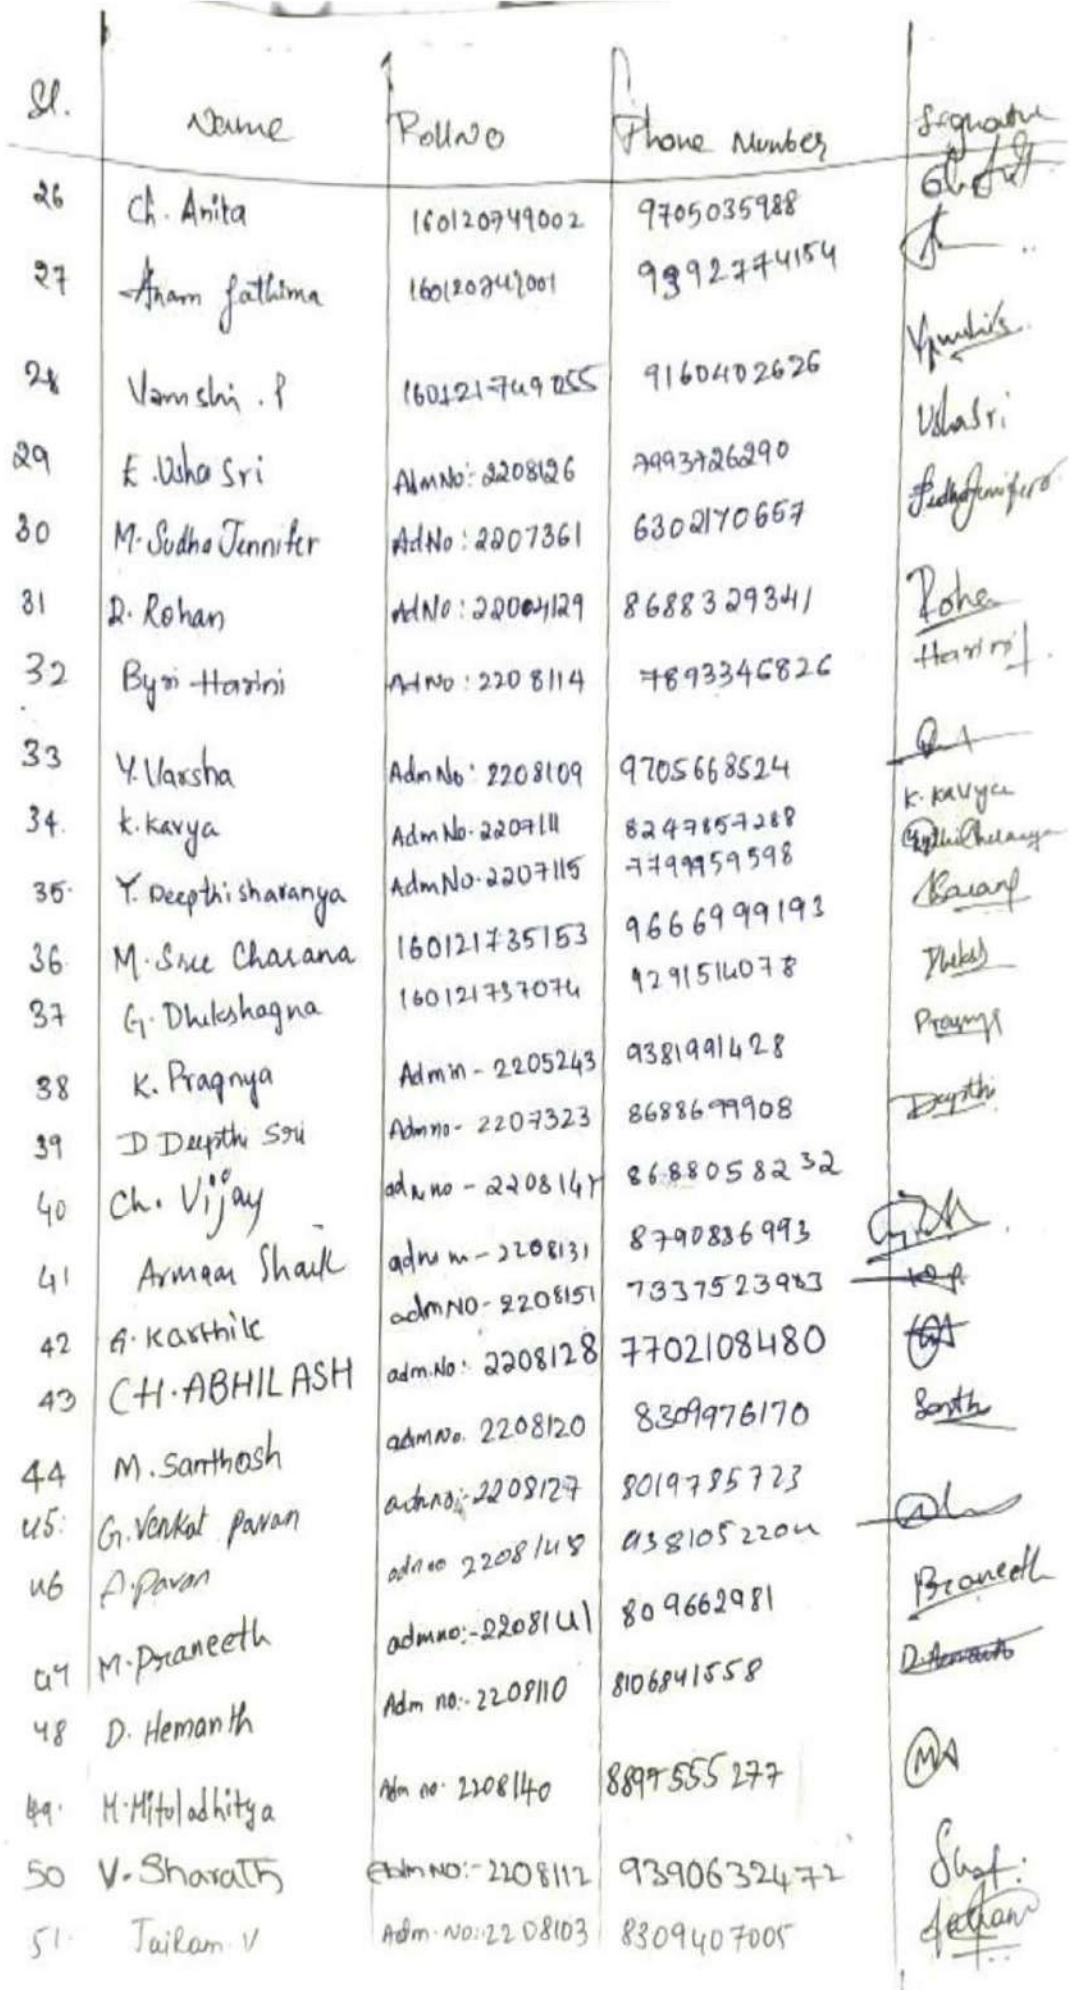 Sl. Name RollNo Phone Number Signature
26 Ch. Anita 160120749002 9705035988
27 Anam fathima 160120749001 9392774154
28 Vamshi . P 160121749055 9160402626
29 E. Usha Sri AdmNo:- 2208126 7993726290 UshaSri
30 M. Sudha Jennifer AdNo : 2207361 6302170657 SudhaJennifer
31 R. Rohan AdNo : 22004129 8688329341 Rohan
32 Byri Harini AdNo : 2208114 7893346826 Harini
33 Y. Varsha Adm No: 2208109 9705668524
34. K. Kavya Adm No. 2207111 8247857288 K. Kavya
35. Y. Deepthi sharanya Adm No. 2207115 7799959598
36. M. Sree Charana 160121735153 9666999193
37 G. Dhikshagna 160121737074 9291514078
38 K. Pragnya Admin - 2205243 9381991428 Pragnya
39 D Deepthi Sri Admno - 2207323 8688699908 Deepthi
40 Ch. Vijay adm no - 2208147 8688058232
41 Armaan Shaik adm m - 2208131 8790836993
42 G. Karthik admNO - 2208151 7337523983
43 CH. ABHILASH adm.No: 2208128 7702108480
44 M. Santhosh admNo. 2208120 8309976170 Santh
45. G. Venkat pavan admno:- 2208127 8019785723
46 A. Pavan admno 2208148 9381052204
47 M. Praneeth admno:- 2208141 809662981 Praneeth
48 D. Hemanth Adm no:- 2208110 8106841558
49. M. Mitul adhitya Adm no. 2208140 8897555277 MA
50 V. Sharath Adm No:- 2208112 9390632472
51. JaiRam. V Adm. No: 2208103 8309407005